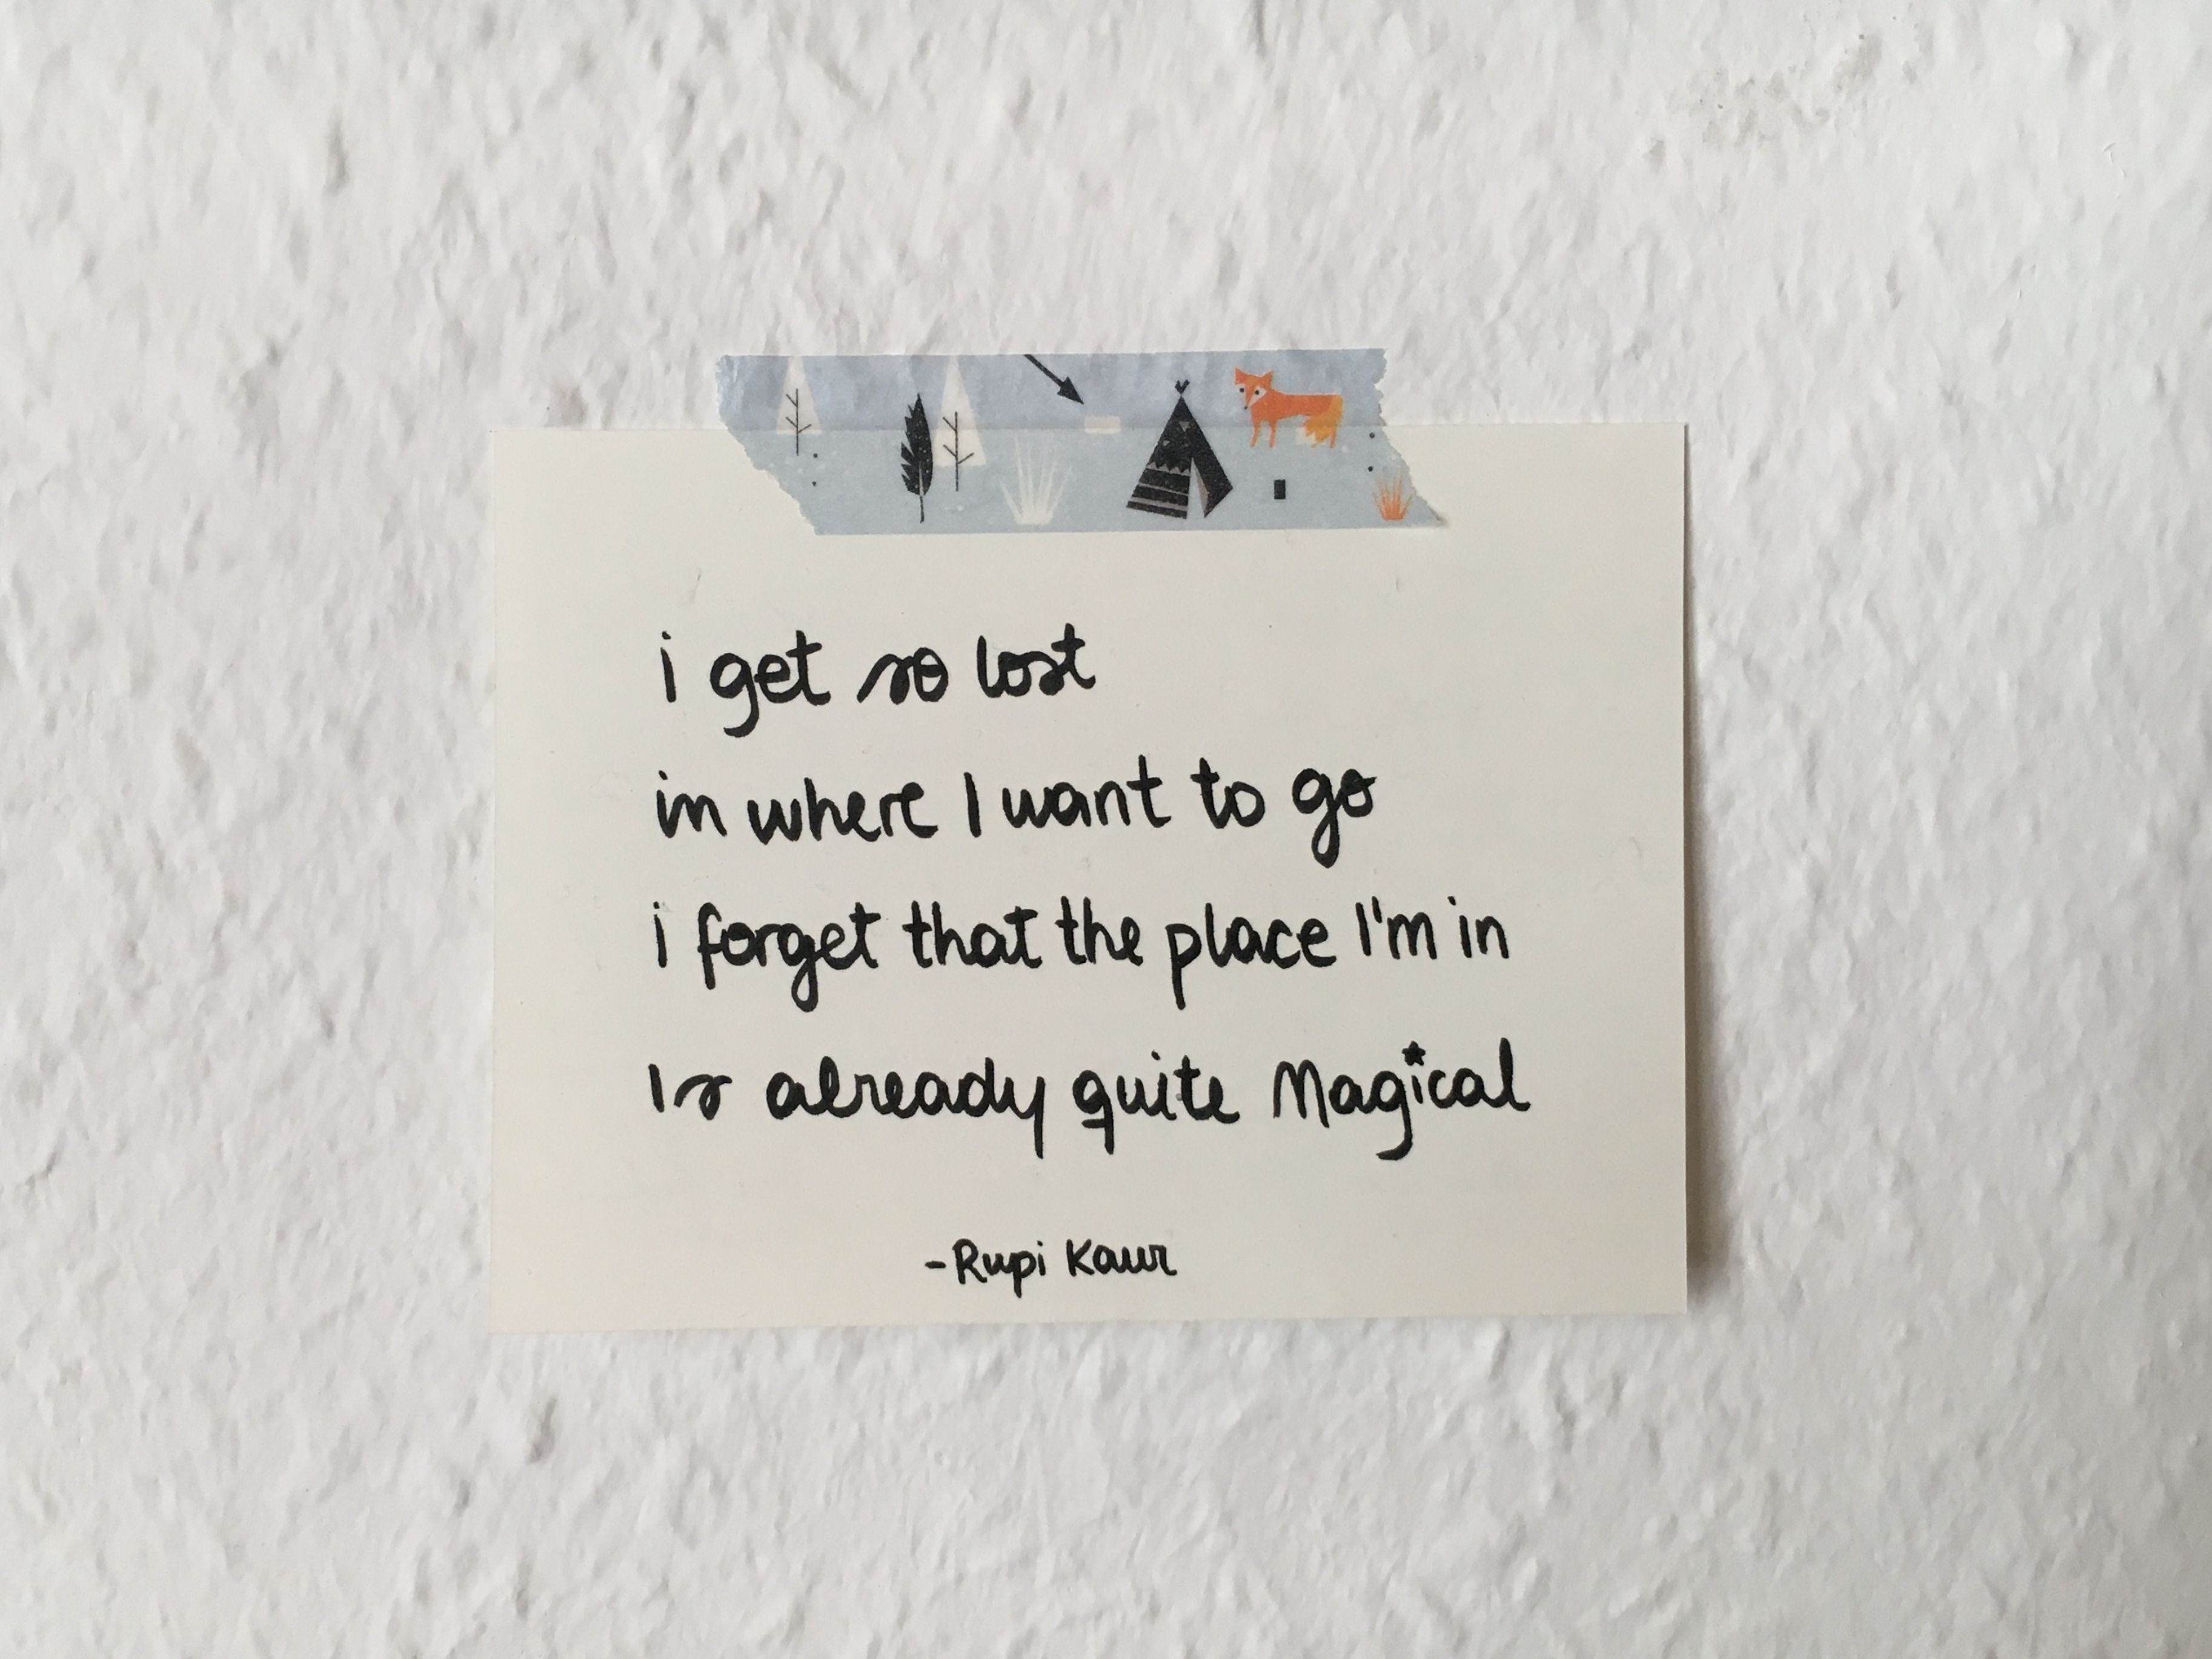 i get so lost
in where I want to go
i forget that the place I'm in
Is already quite Magical
-Rupi Kaur